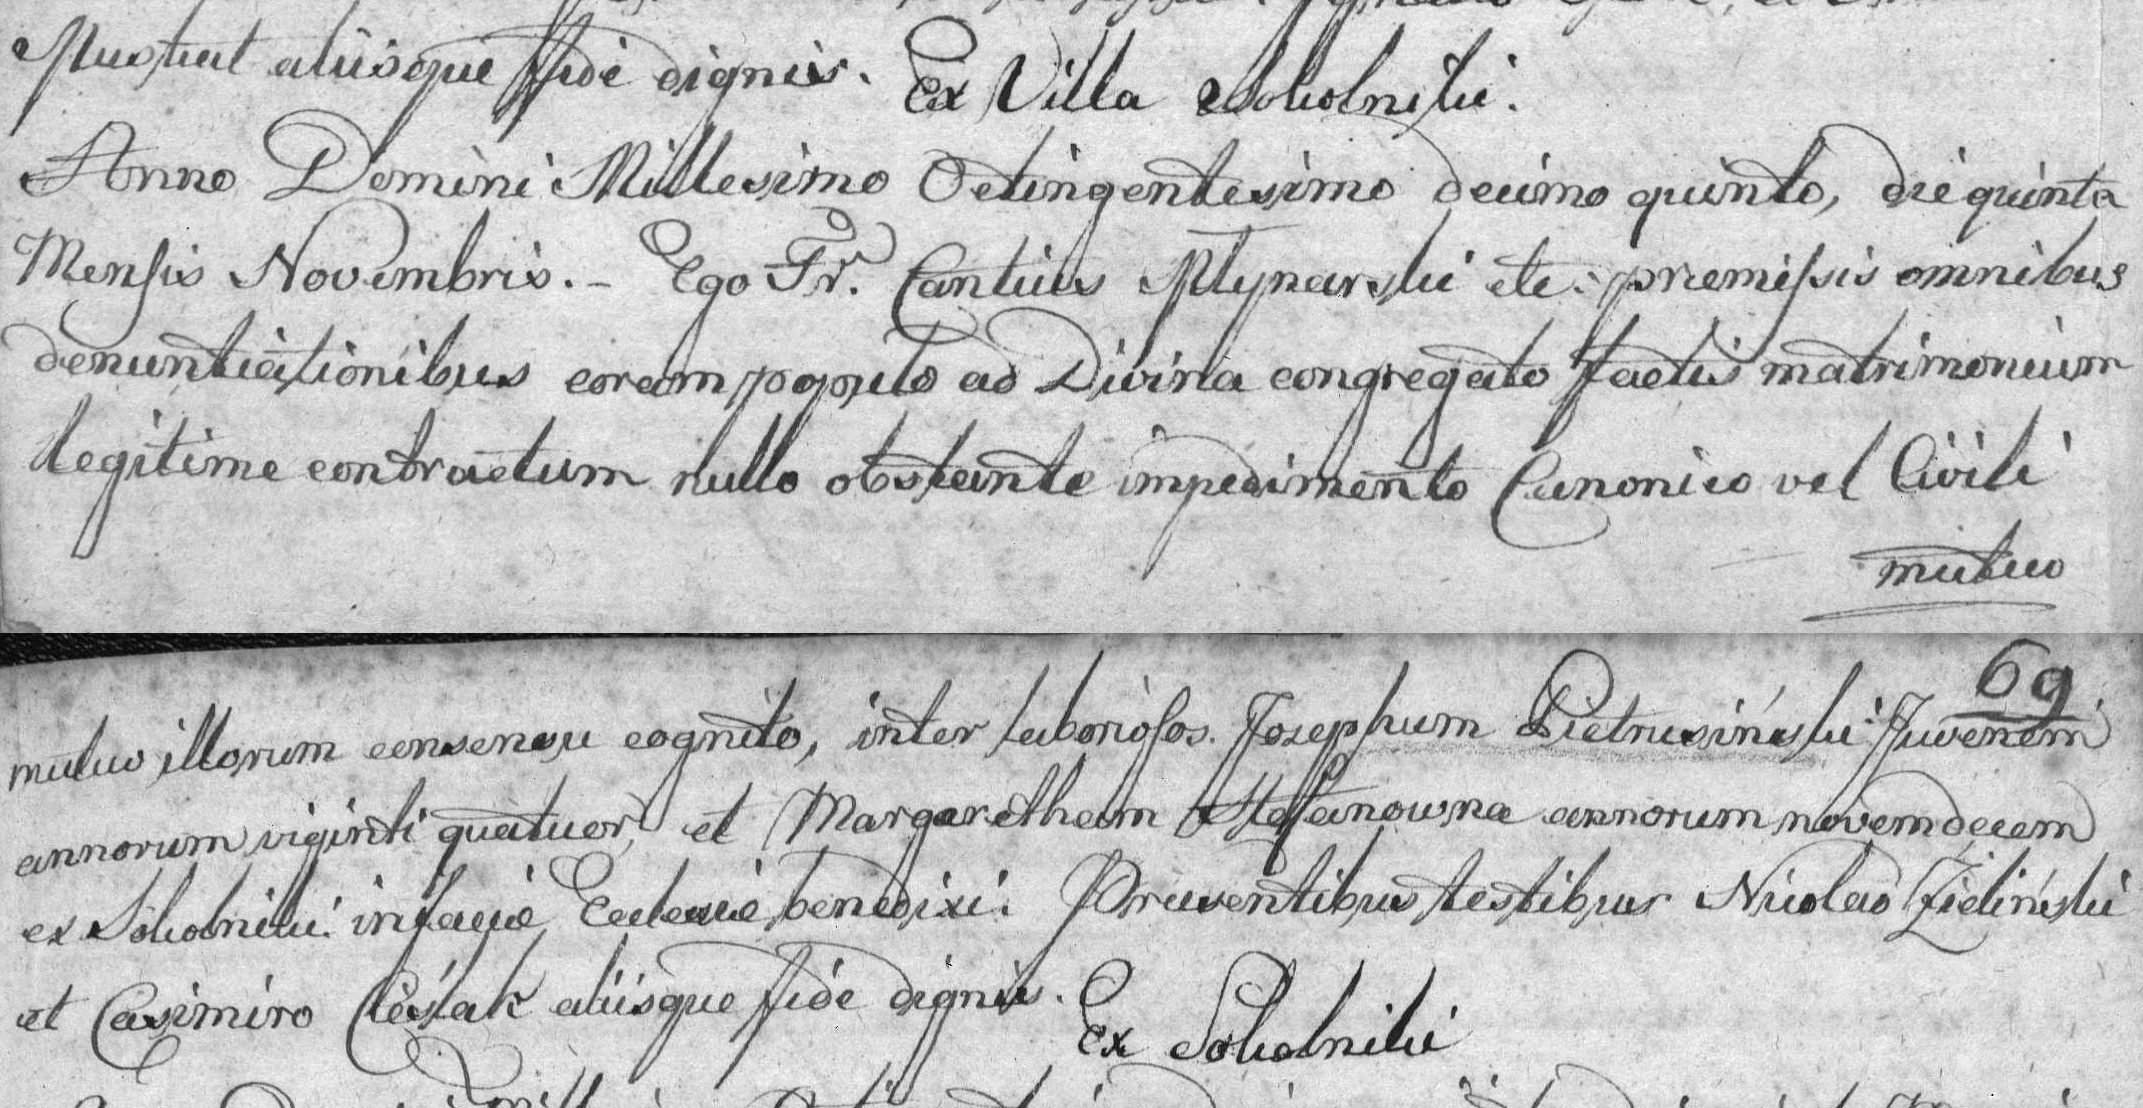 Mustul aliisque fide dignis. Ex Villa Sokolniki.
Anno Domini Millesimo Octingentesimo decimo quinto, die quinta
Mensis Novembris. – Ego Fr. Cantius Młynarski etc: premissis omnibus
denuntiationibus coram populo ad Divina congregato factis matrimonium
legitime contractum nullo obstante impedimento Canonico vel Civili
mutuo
69
mutuo illorum consensu cognito, inter laboriosos. Josephum Pietrusiński Juvenem
annorum viginti quatuor, et Margaretham Stefanowna annorum novemdecem
ex Sokolniki in facie Eclesie benedixi. Presentibus testibus Nicolao Zieliński
et Casimiro Cieślak aliisque fide dignis.
Ex Sokolniki